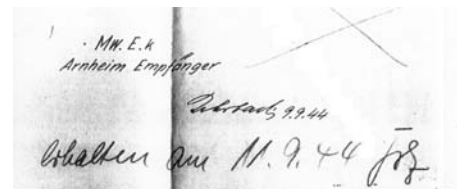 MW. E. K
Arnheim Empfänger
9.9.44
Erhalten am 11.9.44